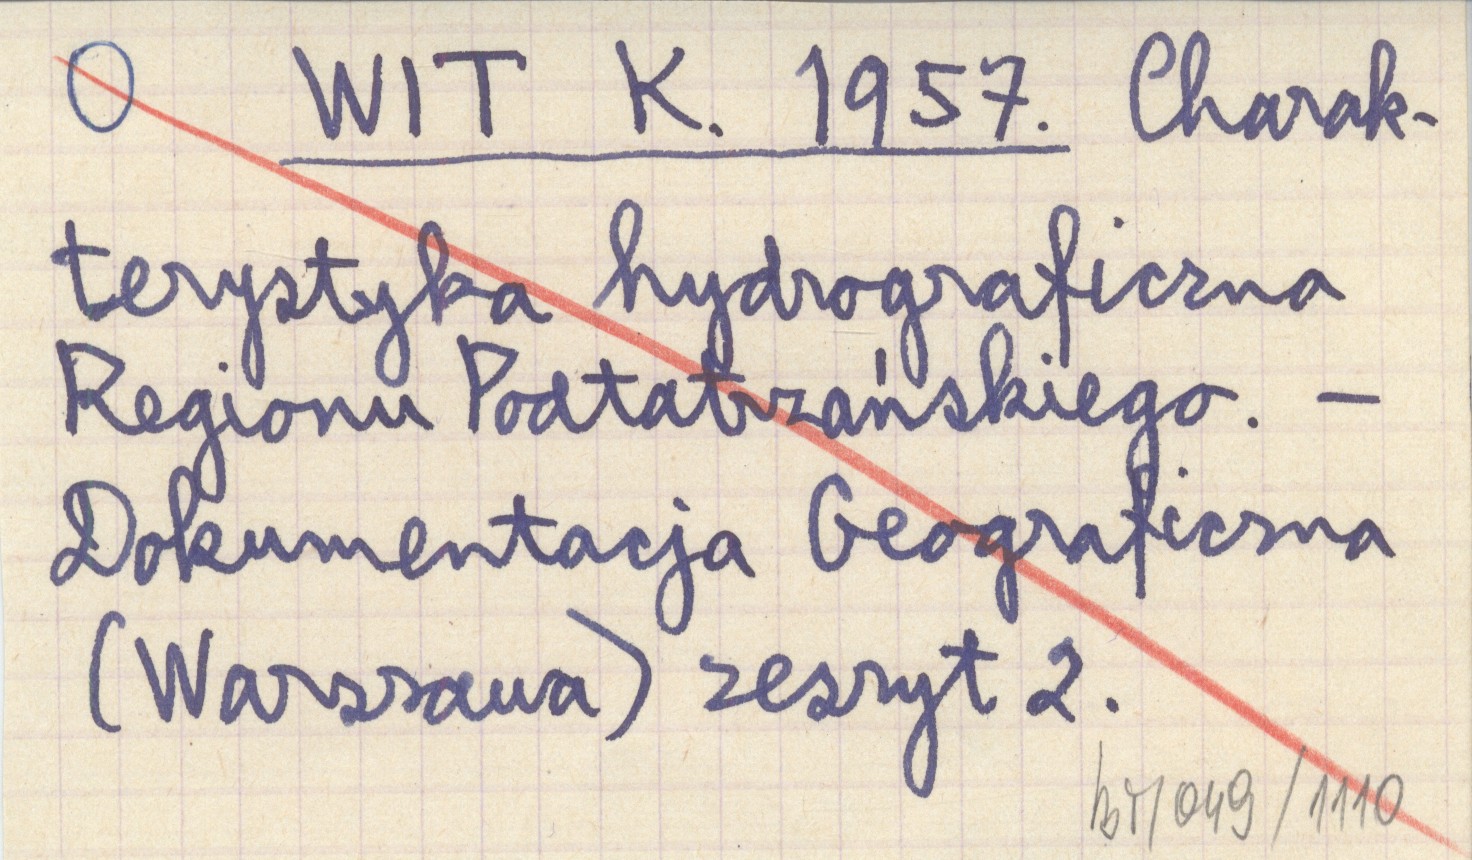 O WIT K. 1957. Charak-
terystyka hydrograficzna
Regionu Podtatrzańskiego. –
Dokumentacja Geograficzna
(Warszawa) zeszyt 2.
/049/1110